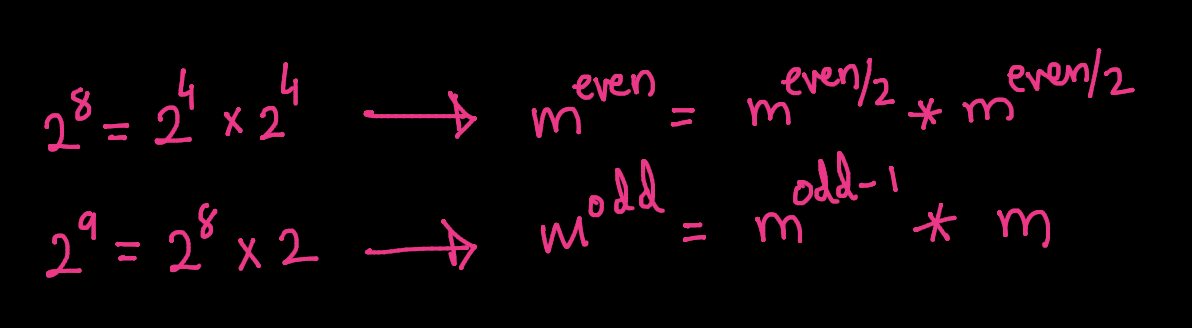 2⁸ = 2⁴ × 2⁴ → m^even = m^even/2 * m^even/2
2⁹ = 2⁸ × 2 → m^odd = m^odd-1 * m